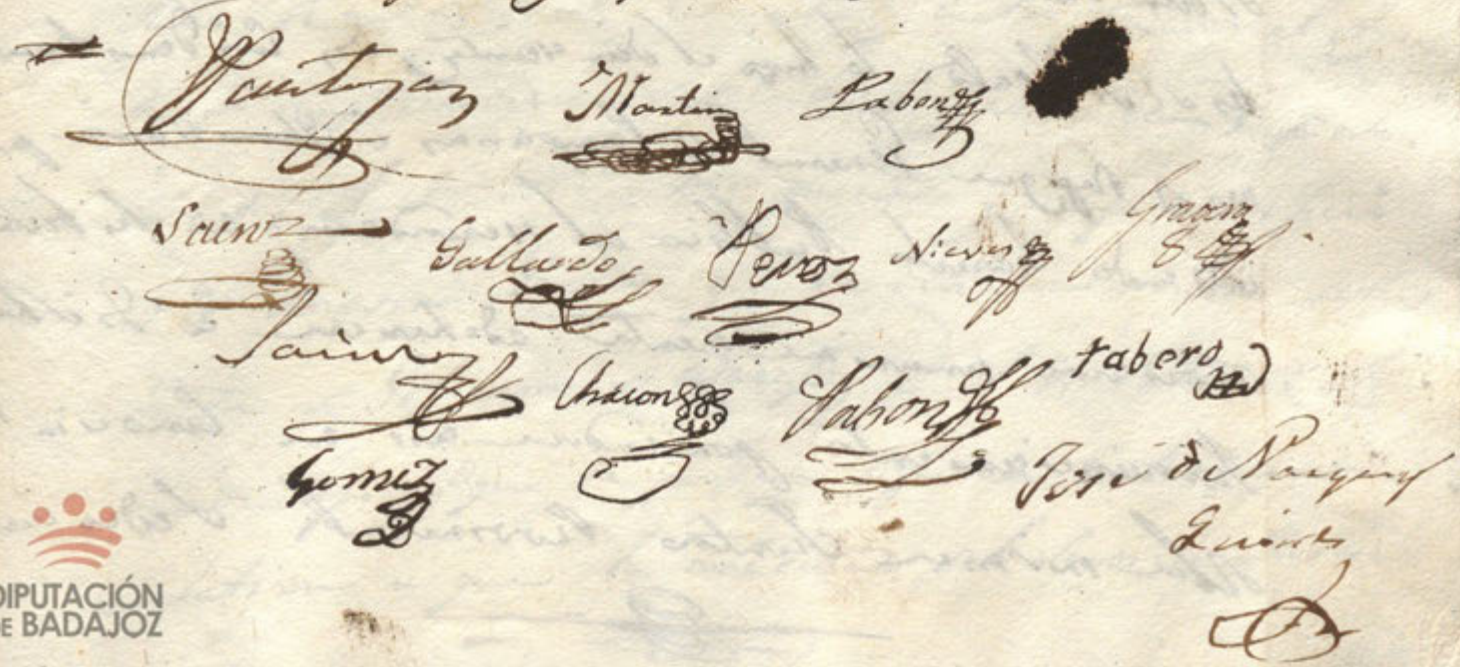 Pantoja
Martin Pabon
Saenz Gallardo Perez Nieves Gragera
Sainz Chacon Pabon tabero
Gomez José
DIPUTACIÓN
DE BADAJOZ